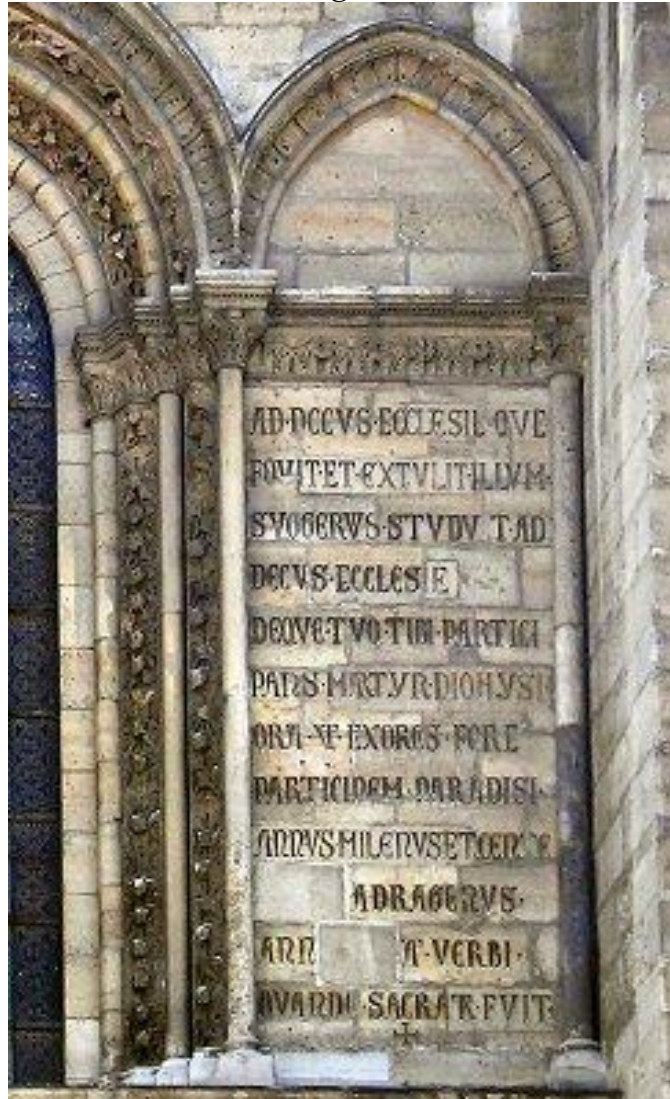 AD·DECVS·ECCLESIE·QVE
FOVIT·ET·EXTVLIT·ILLVM·
SVGGERVS·STVDV T·AD
DECVS·ECCLESIE
DEQVE·TVO·TIBI·PARTICI
PANS·MARTYR·DIONYSI
ORA·VT·EXORES·FORE
PARTICIPEM·PARADISI·
ANNVS·MILENVS·ET·CEN
ADRAGENVS·
ANN VERBI·
QVANDO·SACRATA·FVIT·